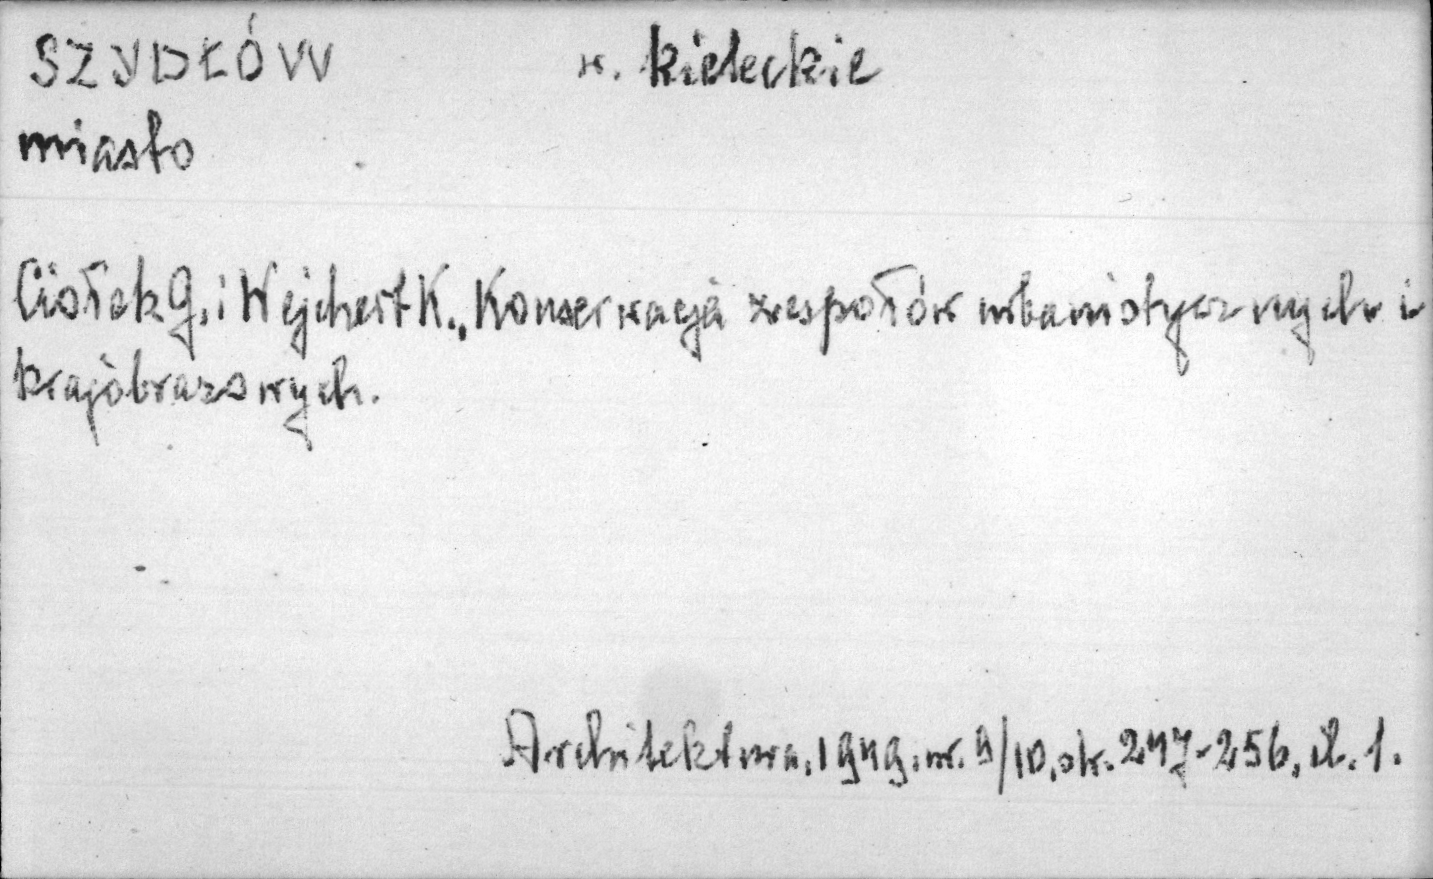 SZYDŁÓW w. kieleckie
miasto
Ciołek G. i Wejchert K., Konserwacja zespołów urbanistycznych i
krajobrazowych.
Architektura, 1949, nr. 9/10, str. 247-256, il. 1.